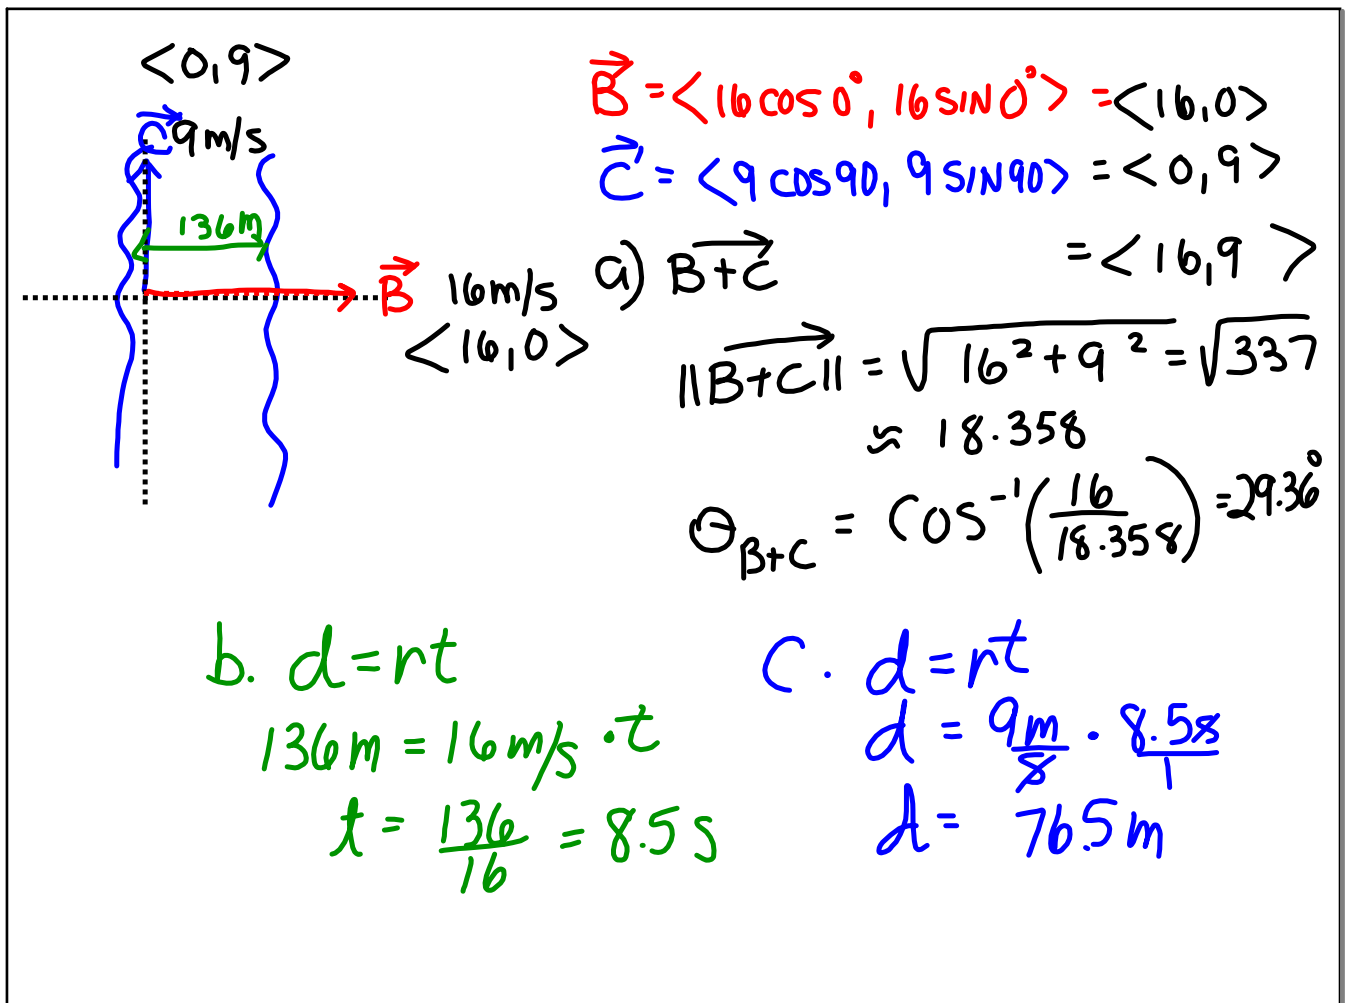 <0,9>
C 9m/s
136m
B 16m/s
<16,0>
B = <16cos0°, 16sin0°> = <16,0>
C = <9cos90, 9sin90> = <0,9>
a) B+C = <16,9>
||B+C|| = √16²+9² = √337
≈ 18.358
θB+C = cos⁻¹(16/18.358) = 29.36°
b. d=rt
136m = 16m/s · t
t = 136/16 = 8.5 s
C. d=rt
d = 9m/s · 8.5s/1
d = 76.5m